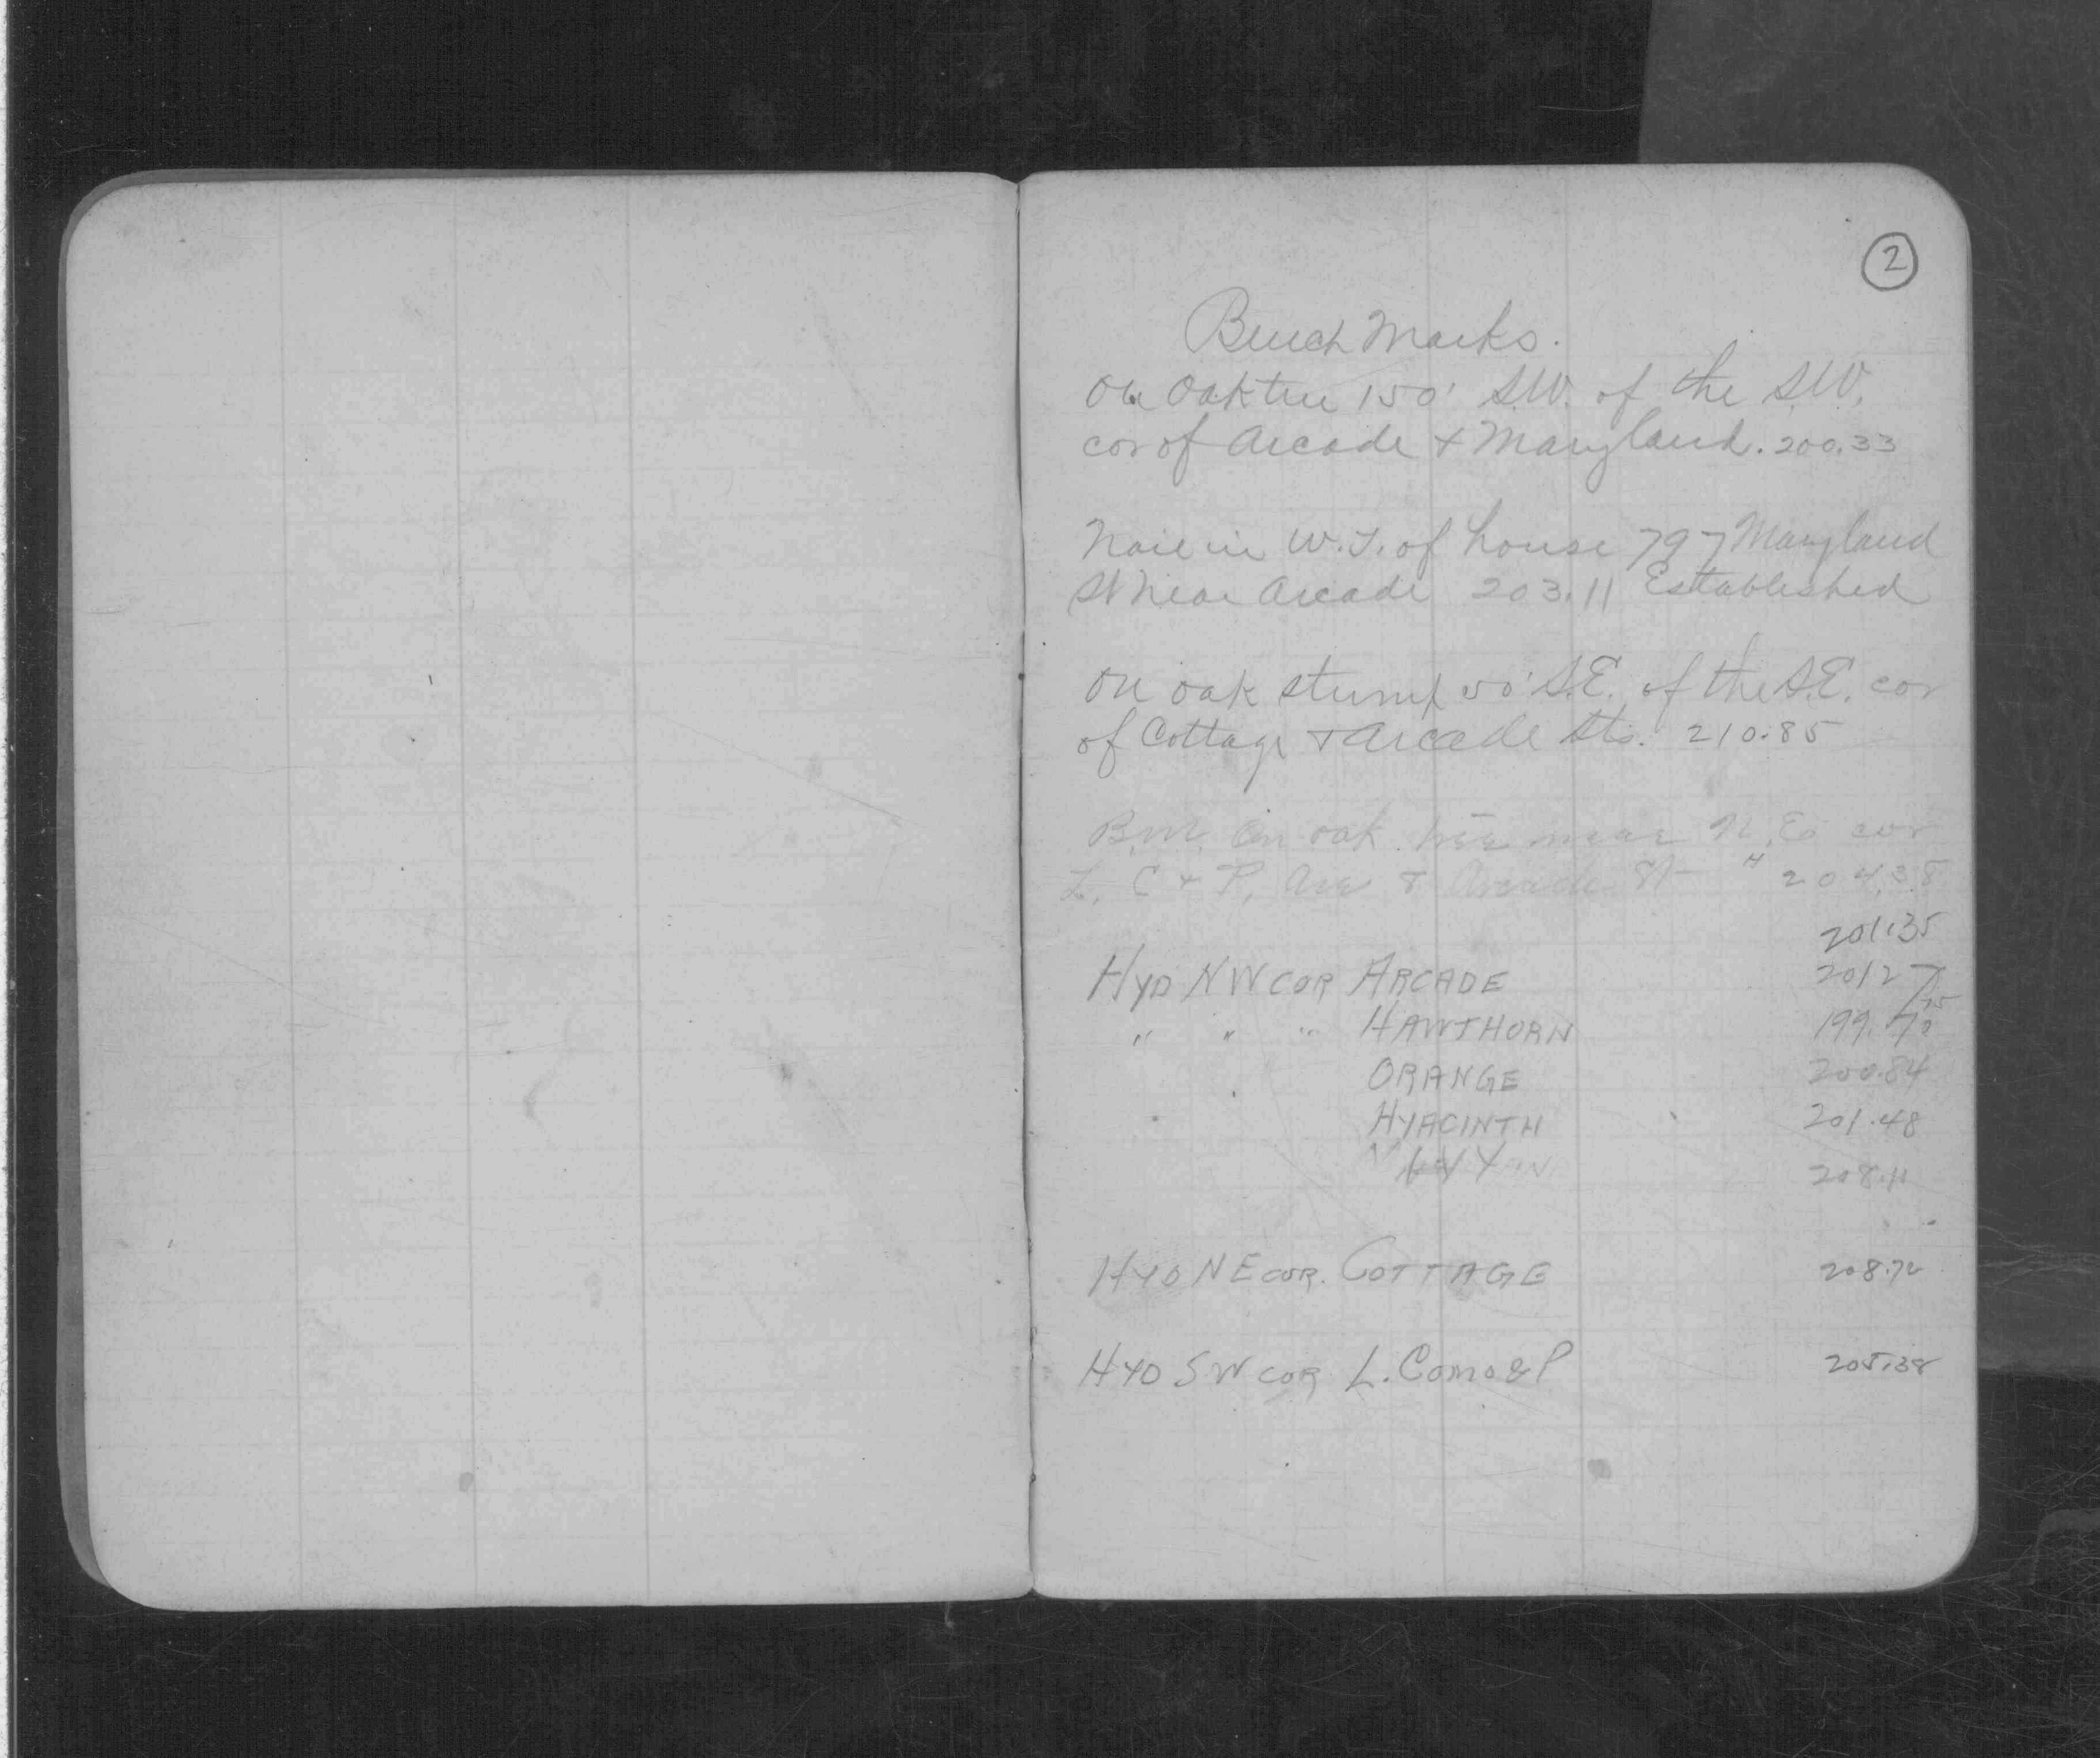 2
Bench Marks.
On Oak tree 150' S.W. of the S.W.
cor of Arcade + Maryland. 200.33
Nail in W.T. of house 797 Maryland
St near Arcade 203.11 Established
On oak stump 50' S.E. of the S.E. cor
of Cottage + Arcade Sts. 210.85
B.M. On oak tree near N.E. cor
L. C + P. Ave & Arcade St " 204.38
201.35
HYD NW COR ARCADE 201 27
" " " HAWTHORN 199.
ORANGE 200.84
HYACINTH 201.48
208.11
HYD NE COR. COTTAGE 208.72
HYD SW COR L. COMO & P 205.38